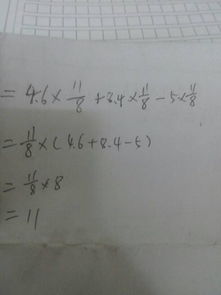 = 4.6 × 11/8 + 8.4 × 11/8 - 5 × 11/8
= 11/8 × ( 4.6 + 8.4 - 5 )
= 11/8 × 8
= 11